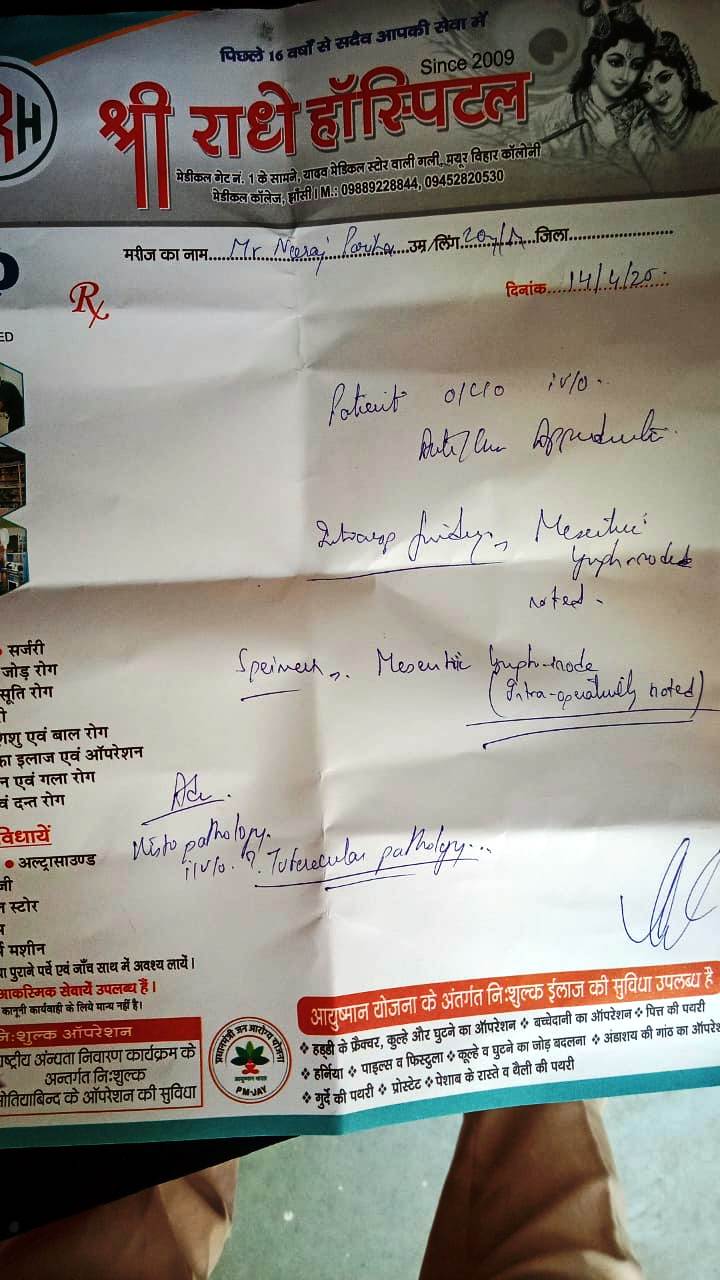 पिछले 16 वर्षों से सदैव आपकी सेवा में
Since 2009
RH
श्री राधे हॉस्पिटल
मेडीकल गेट नं. 1 के सामने, यादव मेडिकल स्टोर वाली गली, मयूर विहार कॉलोनी
मेडीकल कॉलेज, झाँसी। M.: 09889228844, 09452820530
मरीज का नाम Mr Neeraj उम्र/लिंग 20y/ जिला
Rx
दिनांक 14/4/25
ED
Patient O/C/O i/v/o
Appendicitis
Intraop findings Mesenteric
lymph-nodes
noted.
Specimen Mesenteric lymph-node
(Intra-operatively noted)
Adv.
Histopathology.
i/v/o. ? Tubercular pathology...
सर्जरी
जोड़ रोग
सूति रोग
ी
शिशु एवं बाल रोग
का इलाज एवं ऑपरेशन
न एवं गला रोग
वं दन्त रोग
विधायें
अल्ट्रासाउण्ड
जी
न स्टोर
र्म मशीन
या पुराने पर्चे एवं जाँच साथ में अवश्य लायें।
आकस्मिक सेवायें उपलब्ध हैं।
कानूनी कार्यवाही के लिये मान्य नहीं है।
निःशुल्क ऑपरेशन
राष्ट्रीय अन्धता निवारण कार्यक्रम के
अन्तर्गत निःशुल्क
मोतियाबिन्द के ऑपरेशन की सुविधा
प्रधानमंत्री जन आरोग्य योजना
आयुष्मान भारत
PM-JAY
आयुष्मान योजना के अंतर्गत निःशुल्क ईलाज की सुविधा उपलब्ध है
❖ हड्डी के फ्रैक्चर, कुल्हे और घुटने का ऑपरेशन ❖ बच्चेदानी का ऑपरेशन ❖ पित्त की पथरी
❖ हर्निया ❖ पाइल्स व फिस्टुला ❖ कूल्हे व घुटने का जोड़ बदलना ❖ अंडाशय की गांठ का ऑपरे
❖ गुर्दे की पथरी ❖ प्रोस्टेट ❖ पेशाब के रास्ते व थैली की पथरी